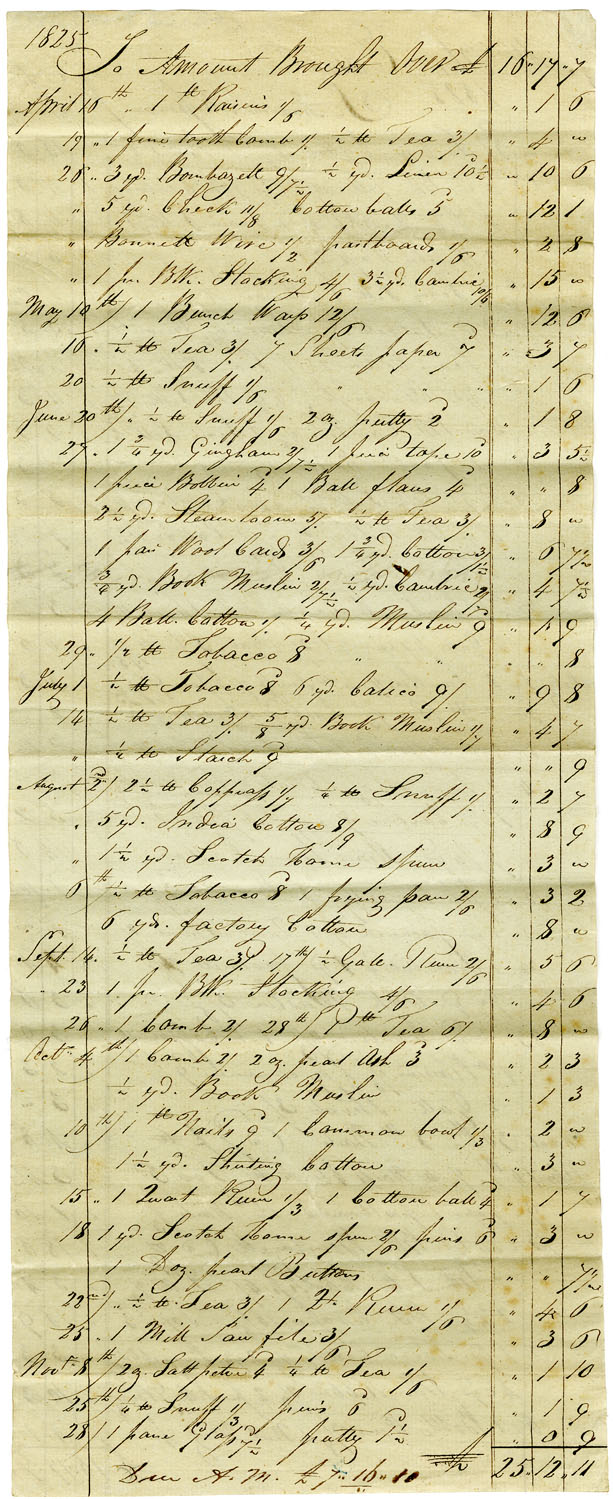 1825
To Amount Brought Over £ 16 " 17 " 7
April 16th " 1 lb Raisins 1/6 " 1 6
19 " 1 fine tooth Comb 1/. ½ lb Tea 3/ " 4 "
26 " 3 yd. Bombazett 9/7½ ½ yd. Linen 10½ " 10 6
" 5 yd. Check 11/8 Cotton balls 5 " 12 1
" Bonnett Wire 1/2 pastboards 1/6 " 2 8
" 1 pr. Blk. Stocking 4/6 3½ yds Cambric 10/6 " 15 "
May 10th / 1 Bunch Warp 12/6 " 12 6
16 . ½ lb Tea 3/. 7 Sheets paper 7 " 3 7
20 ½ lb Snuff 1/6 " " " " 1 6
June 20th / " ½ lb Snuff 1/6 2 oz. putty 2 " 1 8
27 . 1 ¾ yd. Gingham 2/7½ 1 piece tape 10 " 3 5½
1 piece Bobbin 4 1 Ball flaus 4 " " 8
2½ yd. Steamloom 5/. ½ lb Tea 3/. " 8 "
1 pair Wool Cards 3/6 1 ¾ yd. Cotton 3/1½ " 6 7½
¾ yd. Book Muslin 2/7½ ½ yd. Cambric 2/ " 4 7½
4 Ball. Cotton 1/. ¼ yd. Muslin 9 " 1 9
29 " 1/2 lb Tobacco 8 " " " 8
July 1 ½ lb Tobacco 8 6 yd. Calico 9/. " 9 8
14 ½ lb Tea 3/. 5/8 yd. Book Muslin 1/7 " 4 7
" ½ lb Starch 9 " " 9
August 2 / 2½ lb Copperass 1/7 ¼ lb Snuff 1/. " 2 7
" 5 yd. India Cotton 8/9 " 8 9
" 1½ yd. Scotch Home spun " 3 "
6th ½ lb Tobacco 8 1 frying pan 2/6 " 3 2
6 yds. factory Cotton " 8 "
Sept. 14. ½ lb Tea 3/ 17th / ½ Gall. Rum 2/6 " 5 6
" 23 1 pr. Blk. Stocking 4/6 " 4 6
26 " 1 Comb 2/. 28th / 1 lb Tea 6/. " 8 "
Octr 4th / 1 Comb 2/. 2 oz. pearl Ash 3 " 2 3
½ yd. Book Muslin " 1 3
10th / 1 lb Nails 9 1 Common bowl 1/3 . 2 "
1½ yd. Shirting Cotton " 3 "
15 " 1 Quart Rum 1/3 1 Cotton ball 4 " 1 7
18 1 yd. Scotch Home spun 2/6 pins 6 " 3 "
1 Doz. pearl Buttons " " 7½
22nd / " ½ lb. Tea 3/. 1 Qt. Rum 1/6 " 4 6
25 . 1 Mill Saw file 3/6 " 3 6
Novr. 8th / 2 oz. Saltpeter 4 ¼ lb Tea 1/6 " 1 10
25th / ¼ lb Snuff 1/3 pins 6 " 1 9
28 / 1 pane Glass 7½ putty 1½ " 0 9
Due A. M. £ 7 " 16 " 10 £ 25 " 12 " 11